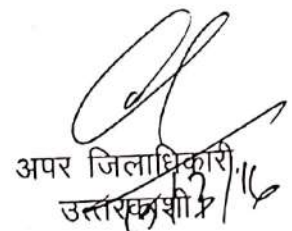 अपर जिलाधिकारी,
उत्तरकाशी